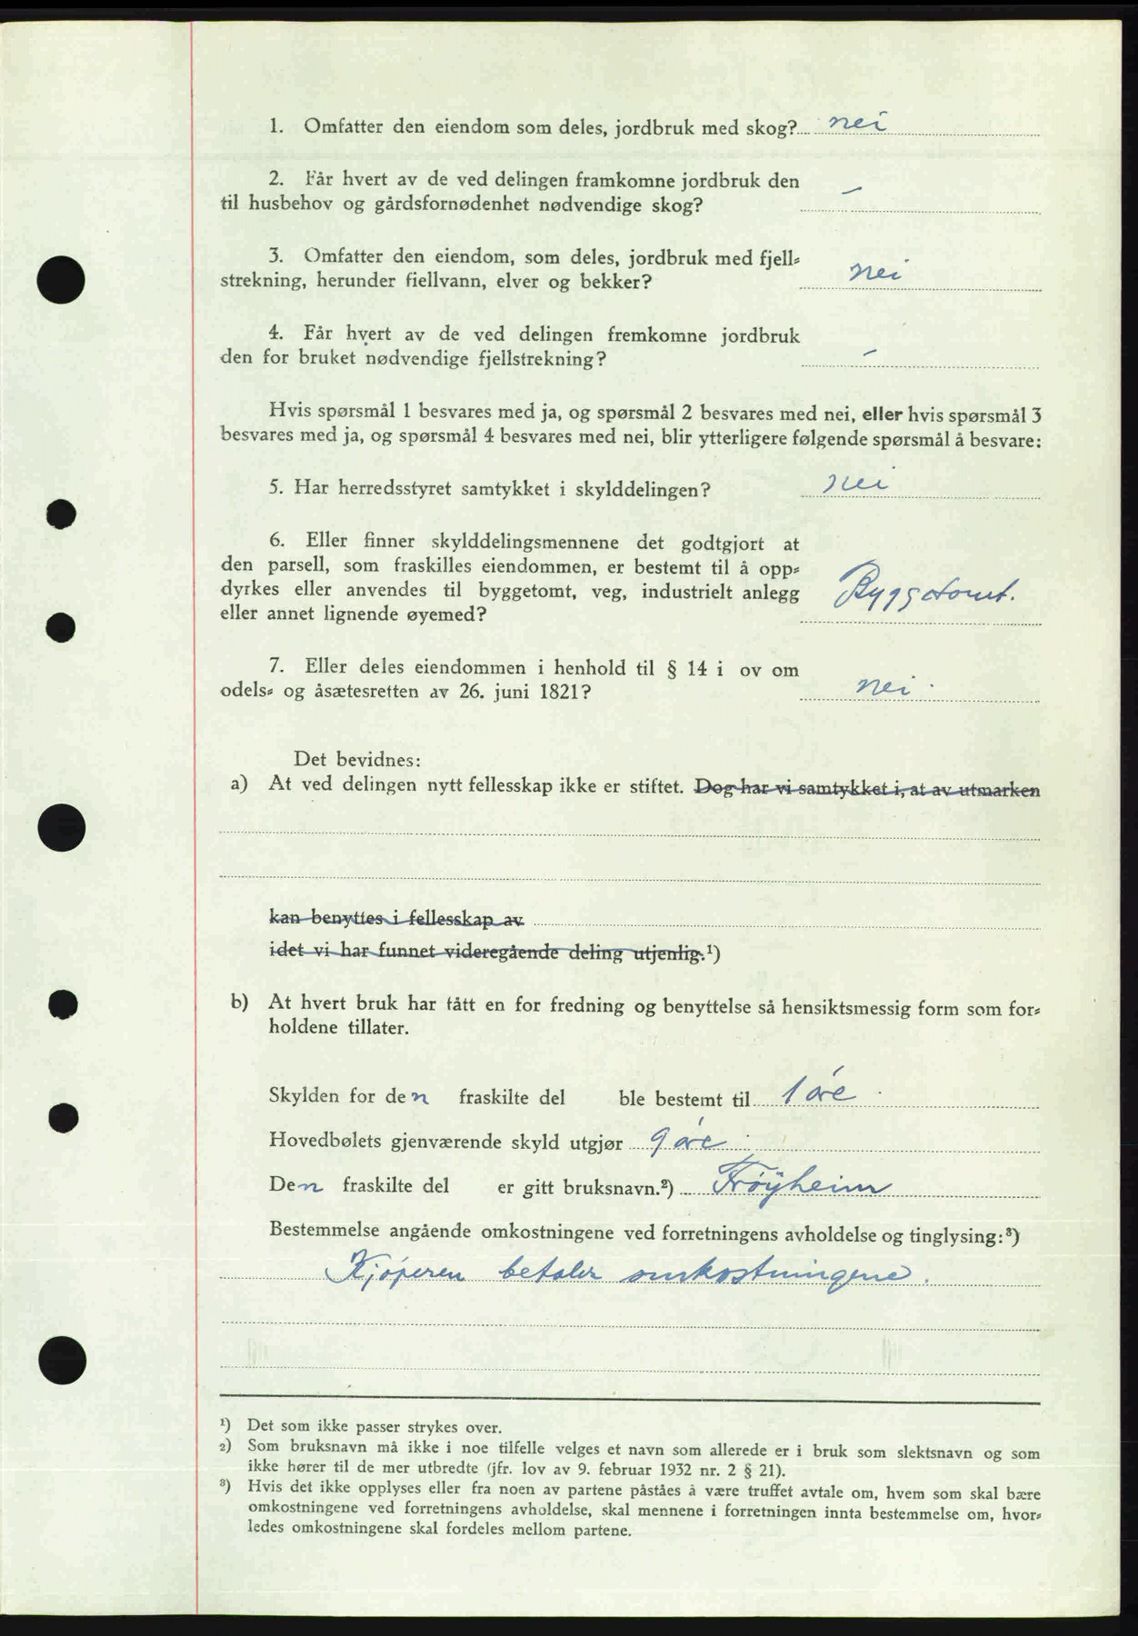 1. Omfatter den eiendom som deles, jordbruk med skog? nei
2. Får hvert av de ved delingen framkomne jordbruk den
til husbehov og gårdsfornødenhet nødvendige skog? –
3. Omfatter den eiendom, som deles, jordbruk med fjell=
strekning, herunder fiellvann, elver og bekker? nei
4. Får hvert av de ved delingen fremkomne jordbruk
den for bruket nødvendige fjellstrekning? –
Hvis spørsmål 1 besvares med ja, og spørsmål 2 besvares med nei, eller hvis spørsmål 3
besvares med ja, og spørsmål 4 besvares med nei, blir ytterligere følgende spørsmål å besvare:
5. Har herredsstyret samtykket i skylddelingen? nei
6. Eller finner skylddelingsmennene det godtgjort at
den parsell, som fraskilles eiendommen, er bestemt til å opp=
dyrkes eller anvendes til byggetomt, veg, industrielt anlegg
eller annet lignende øyemed? Byggetomt.
7. Eller deles eiendommen i henhold til § 14 i ov om
odels= og åsætesretten av 26. juni 1821? nei.
Det bevidnes:
a) At ved delingen nytt fellesskap ikke er stiftet. Dog har vi samtykket i, at av utmarken
kan benyttes i fellesskap av
idet vi har funnet videregående deling utjenlig.¹)
b) At hvert bruk har fått en for fredning og benyttelse så hensiktsmessig form som for=
holdene tillater.
Skylden for den fraskilte del ble bestemt til 1 øre.
Hovedbølets gjenværende skyld utgjør 9 øre.
Den fraskilte del er gitt bruksnavn.²) Frøyheim
Bestemmelse angående omkostningene ved forretningens avholdelse og tinglysing:³)
Kjøperen betaler omkostningene.
¹) Det som ikke passer strykes over.
²) Som bruksnavn må ikke i noe tilfelle velges et navn som allerede er i bruk som slektsnavn og som
ikke hører til de mer utbredte (jfr. lov av 9. februar 1932 nr. 2 § 21).
³) Hvis det ikke opplyses eller fra noen av partene påståes å være truffet avtale om, hvem som skal bære
omkostningene ved forretningens avholdelse, skal mennene i forretningen innta bestemmelse om, hvor=
ledes omkostningene skal fordeles mellom partene.